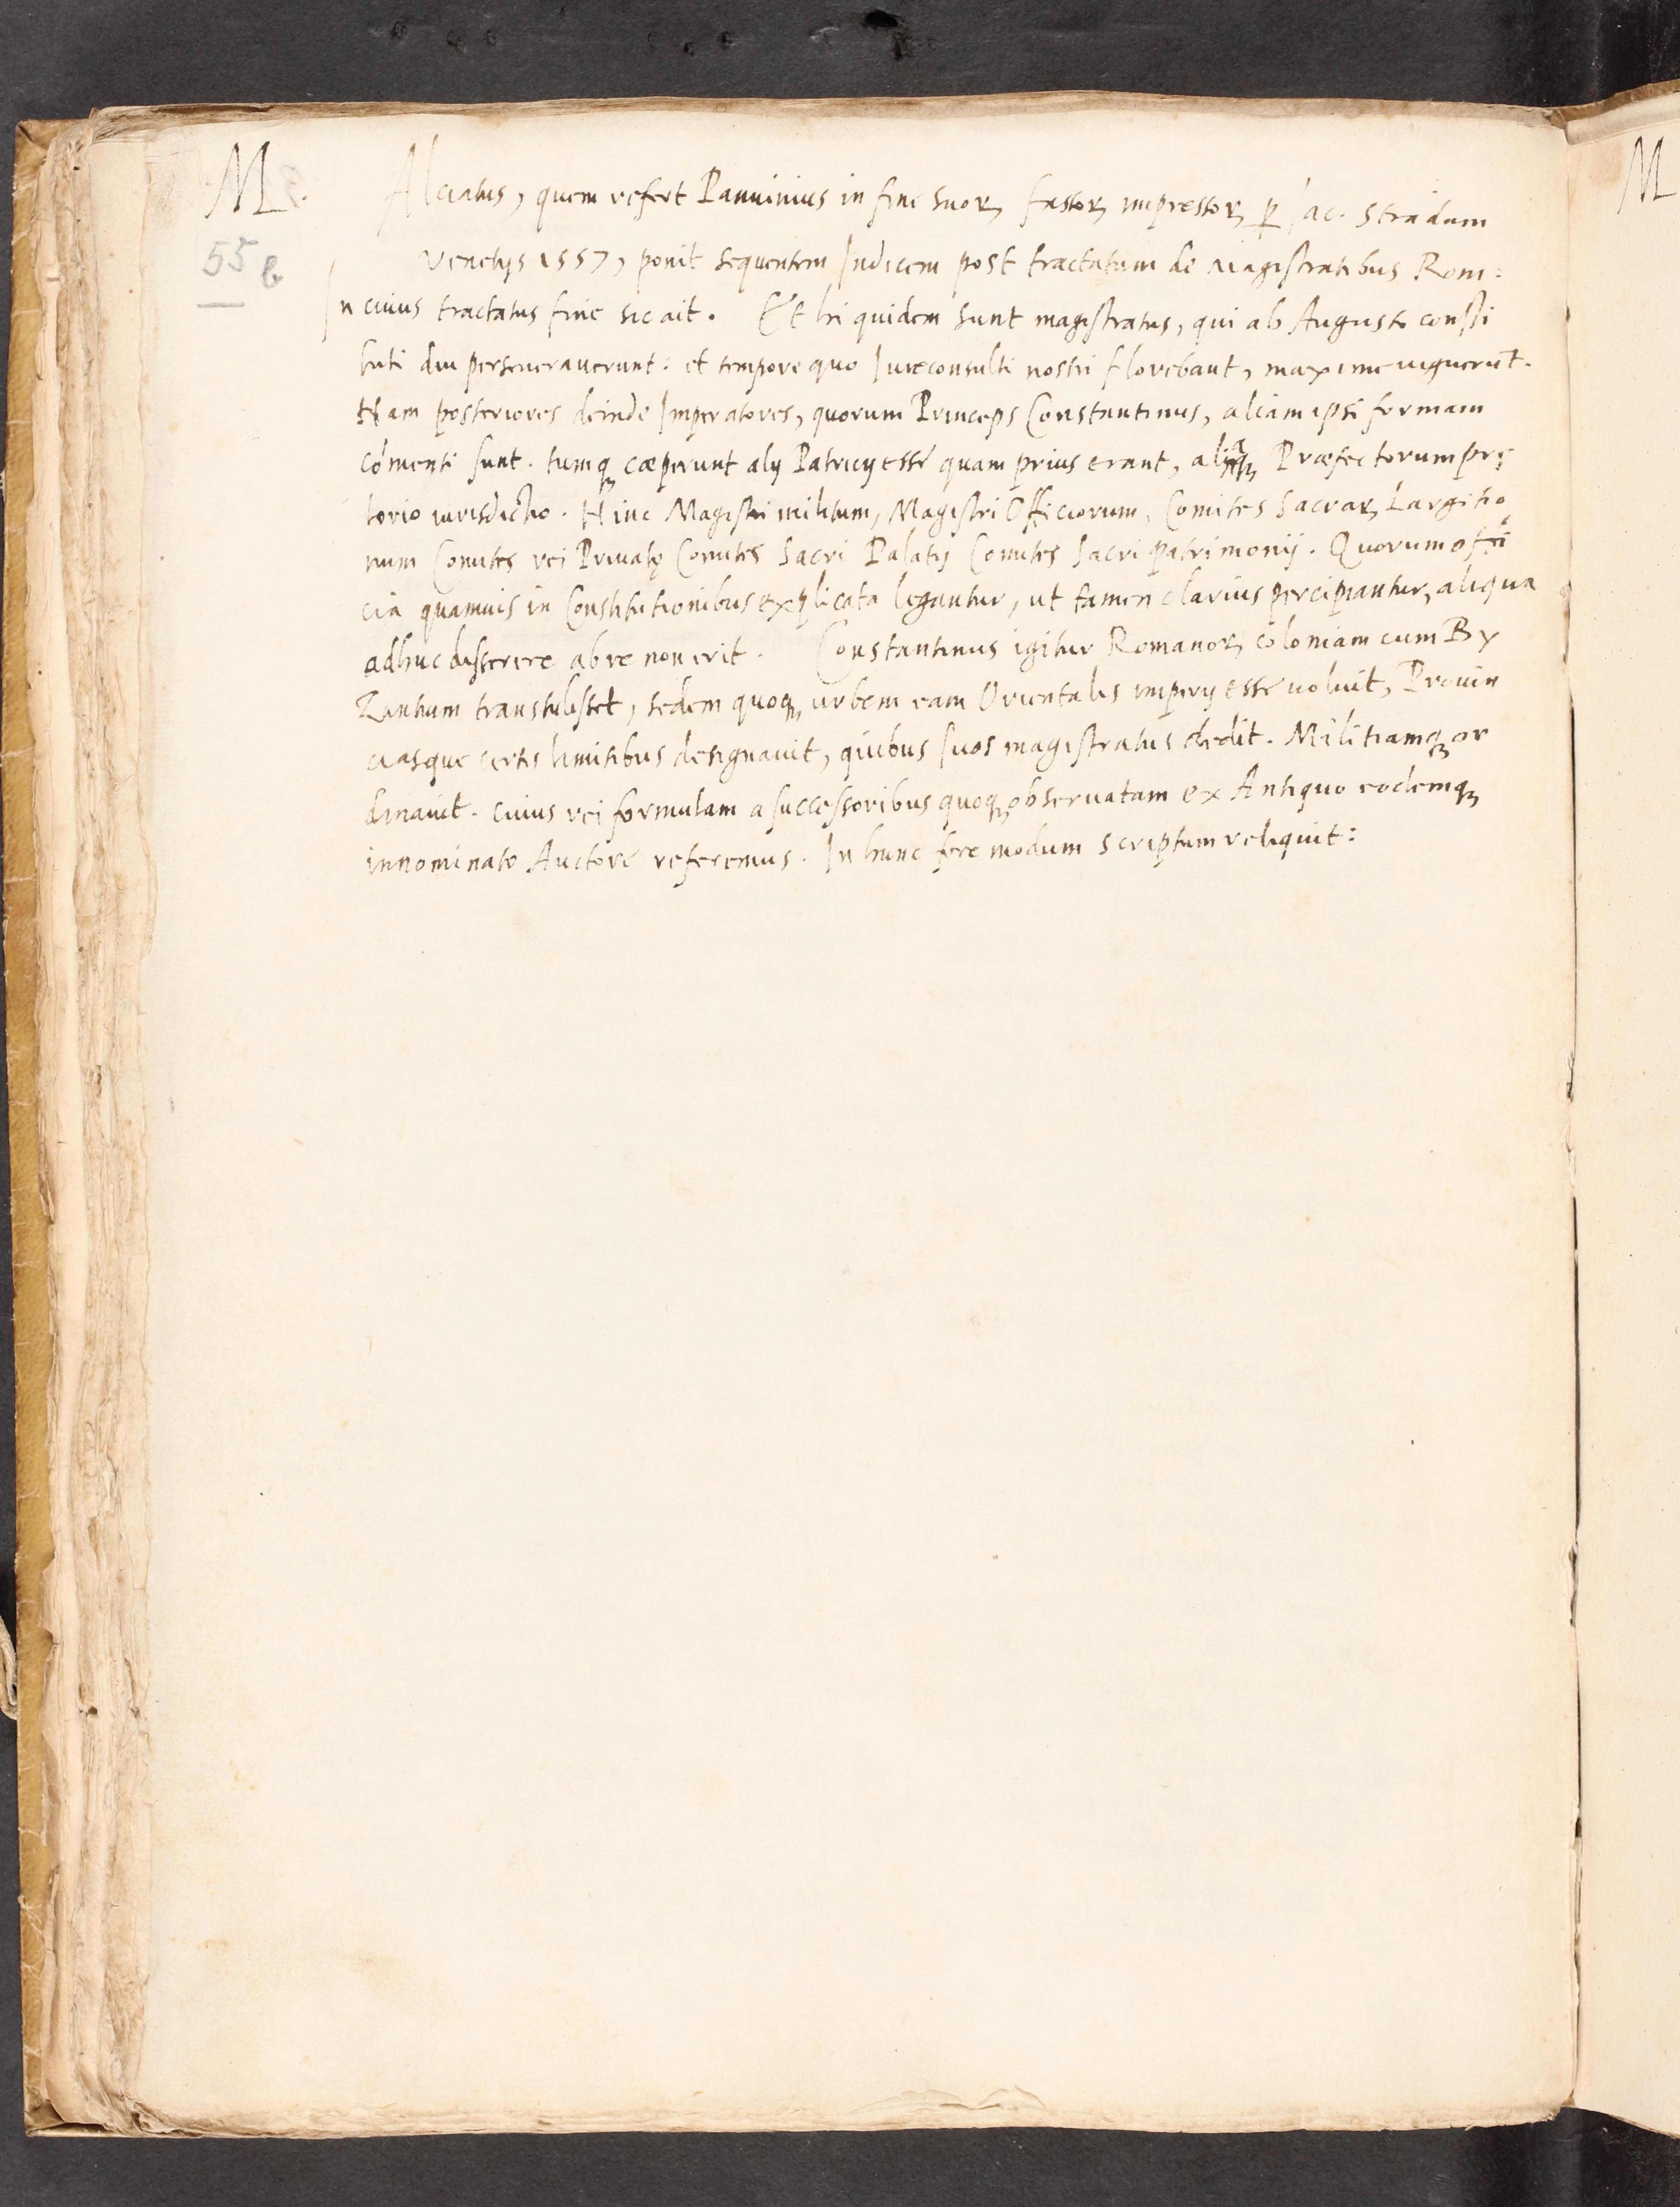 M
55 b
Alciatus, quem refert Panuinius in fine suoꝝ fastoꝝ impressoꝝ ꝑ Iac. Stradam
Venetijs 1557, ponit sequentem Indicem post tractatum de Magistratibus Rom:
In cuius tractatus fine sic ait. Et hi quidem sunt magistratus, qui ab Augusto consti
tuti diu perseuerauerunt: et tempore quo Iureconsulti nostri florebant, maxime uiguerūt.
Nam posteriores deinde Imperatores, quorum Princeps Constantinus, aliam ipsi formam
cōmenti sunt. tumqꝫ cœperunt alij Patricij esse quam prius erant, aliaqꝫ Præfectorum prę
torio iurisdictio. Hinc Magistri militum, Magistri Officiorum, Comites Sacraꝝ Largitio
num Comites rei Priuatę Comites Sacri Palatij Comites sacri patrimonij. Quorum offi
cia quamuis in Constitutionibus explicata legantur, ut tamen clarius percipiantur, aliqua
adhuc disserere ab re non erit. Constantinus igitur Romanoꝝ coloniam cum By
Zantium transtulisset, sedem quoqꝫ urbem eam Orientalis imperij esse uoluit, Prouin
ciasque certis limitibus designauit, quibus suos magistratus dedit. Militiamqꝫ or
dinauit. cuius rei formulam a successoribus quoqꝫ obseruatam ex Antiquo eodemqꝫ
innominato Auctore referemus. In hunc fere modum scriptum reliquit:
M